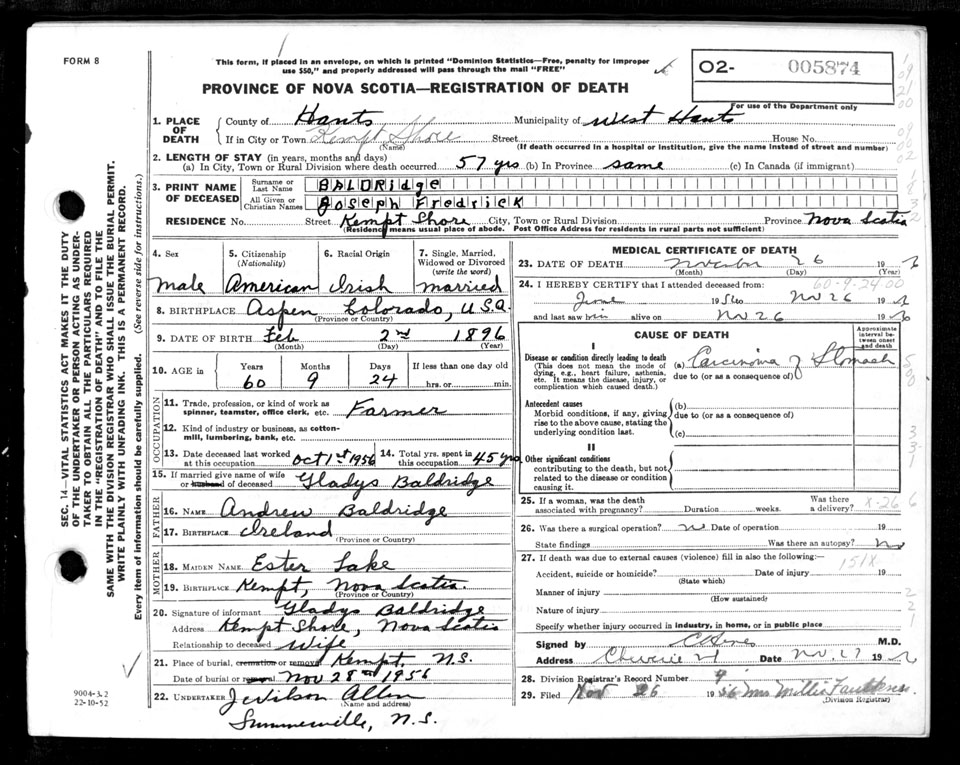 FORM 8
This form, if placed in an envelope, on which is printed "Dominion Statistics—Free, penalty for improper
use $50," and properly addressed will pass through the mail "FREE"
O2- 005874
For use of the Department only
PROVINCE OF NOVA SCOTIA—REGISTRATION OF DEATH
1. PLACE OF DEATH
County of Hants Municipality of West Hants
If in City or Town Kempt Shore Street House No.
(Name) (If death occurred in a hospital or institution, give the name instead of street and number)
2. LENGTH OF STAY (in years, months and days)
(a) In City, Town or Rural Division where death occurred 57 yrs (b) In Province same (c) In Canada (if immigrant)
3. PRINT NAME OF DECEASED
Surname or Last Name BALDRidge
All Given or Christian Names Joseph Fredrick
RESIDENCE No. Street Kempt Shore City, Town or Rural Division Province Nova Scotia
(Residence means usual place of abode. Post Office Address for residents in rural parts not sufficient)
4. Sex
male
5. Citizenship
(Nationality)
American
6. Racial Origin
Irish
7. Single, Married,
Widowed or Divorced
(write the word)
married
8. BIRTHPLACE Aspen Colorado, U.S.A.
(Province or Country)
9. DATE OF BIRTH Feb 2nd 1896
(Month) (Day) (Year)
10. AGE in
Years Months Days If less than one day old
60 9 24 hrs. or min.
OCCUPATION
11. Trade, profession, or kind of work as
spinner, teamster, office clerk, etc. Farmer
12. Kind of industry or business, as cotton-
mill, lumbering, bank, etc.
13. Date deceased last worked
at this occupation Oct 1st 1956
14. Total yrs. spent in
this occupation 45 yrs
15. If married give name of wife
or husband of deceased Gladys Baldridge
FATHER
16. NAME Andrew Baldridge
17. BIRTHPLACE Ireland
(Province or Country)
MOTHER
18. MAIDEN NAME Ester Lake
19. BIRTHPLACE Kempt, Nova Scotia
(Province or Country)
20. Signature of informant Gladys Baldridge
Address Kempt Shore, Nova Scotia
Relationship to deceased Wife
21. Place of burial, cremation or removal Kempt, N.S.
Date of burial or removal Nov 28th 1956
22. UNDERTAKER J Wilson Allen
(Name and address)
Summerville, N.S.
MEDICAL CERTIFICATE OF DEATH
23. DATE OF DEATH November 26 19
(Month) (Day) (Year)
60-9-24.00
24. I HEREBY CERTIFY that I attended deceased from:
June 1956 to Nov 26 19
and last saw him alive on Nov 26 19
CAUSE OF DEATH
Approximate
interval be-
tween onset
and death
I
Disease or condition directly leading to death
(This does not mean the mode of
dying, e.g., heart failure, asthenia,
etc. It means the disease, injury, or
complication which caused death.)
(a) Carcinoma of Stomach
due to (or as a consequence of)
Antecedent causes
Morbid conditions, if any, giving
rise to the above cause, stating the
underlying condition last.
(b)
due to (or as a consequence of)
(c)
II
Other significant conditions
contributing to the death, but not
related to the disease or condition
causing it.
25. If a woman, was the death
associated with pregnancy? Duration weeks. Was there
a delivery? X-26
26. Was there a surgical operation? no Date of operation 19
State findings Was there an autopsy? No
27. If death was due to external causes (violence) fill in also the following:
151X
Accident, suicide or homicide? Date of injury 19
(State which)
Manner of injury
(How sustained)
Nature of injury
Specify whether injury occurred in industry, in home, or in public place
Signed by M.D.
Address Date Nov. 27 19
28. Division Registrar's Record Number 9
29. Filed Nov 26 1956 Mrs Millie
(Division Registrar)
SEC. 14—VITAL STATISTICS ACT MAKES IT THE DUTY
OF THE UNDERTAKER OR PERSON ACTING AS UNDER-
TAKER TO OBTAIN ALL THE PARTICULARS REQUIRED
IN THE "REGISTRATION OF DEATH" AND TO FILE THE
SAME WITH THE DIVISION REGISTRAR WHO SHALL ISSUE THE BURIAL PERMIT.
WRITE PLAINLY WITH UNFADING INK. THIS IS A PERMANENT RECORD.
Every item of information should be carefully supplied. (See reverse side for instructions.)
9004-3.2
22-10-52